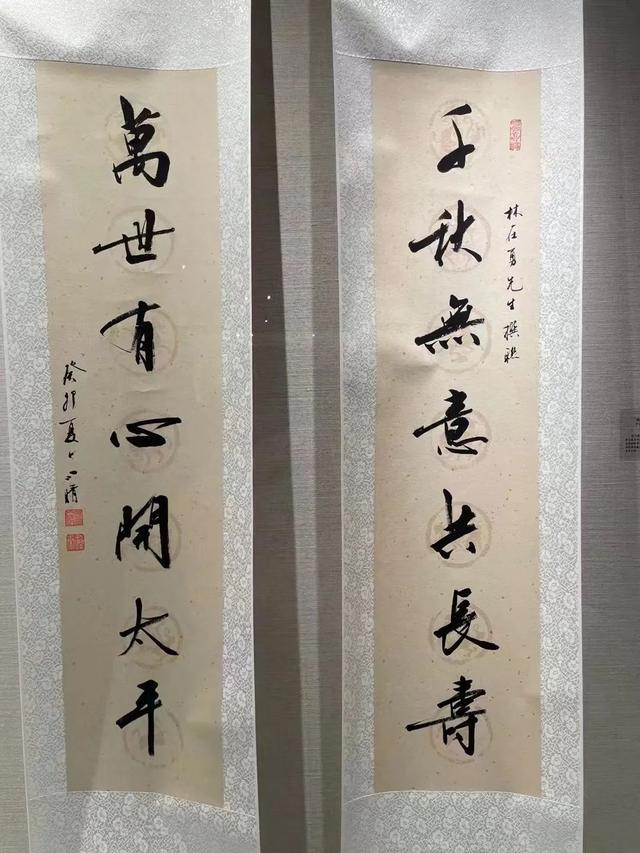 千秋無意共長壽
林在勇先生撰聯
萬世有心開太平
癸卯夏